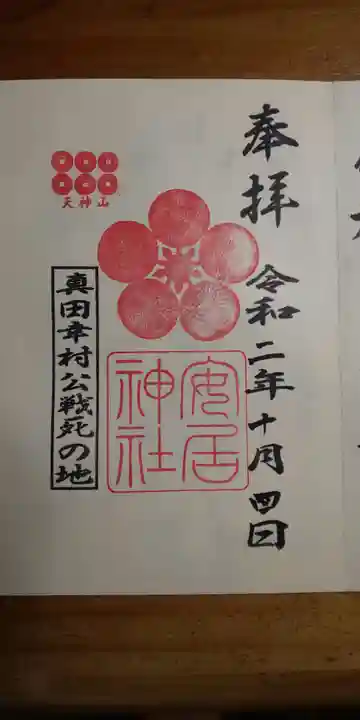 奉拝
令和二年十月四日
安居
神社
天神山
真田幸村公戦死の地